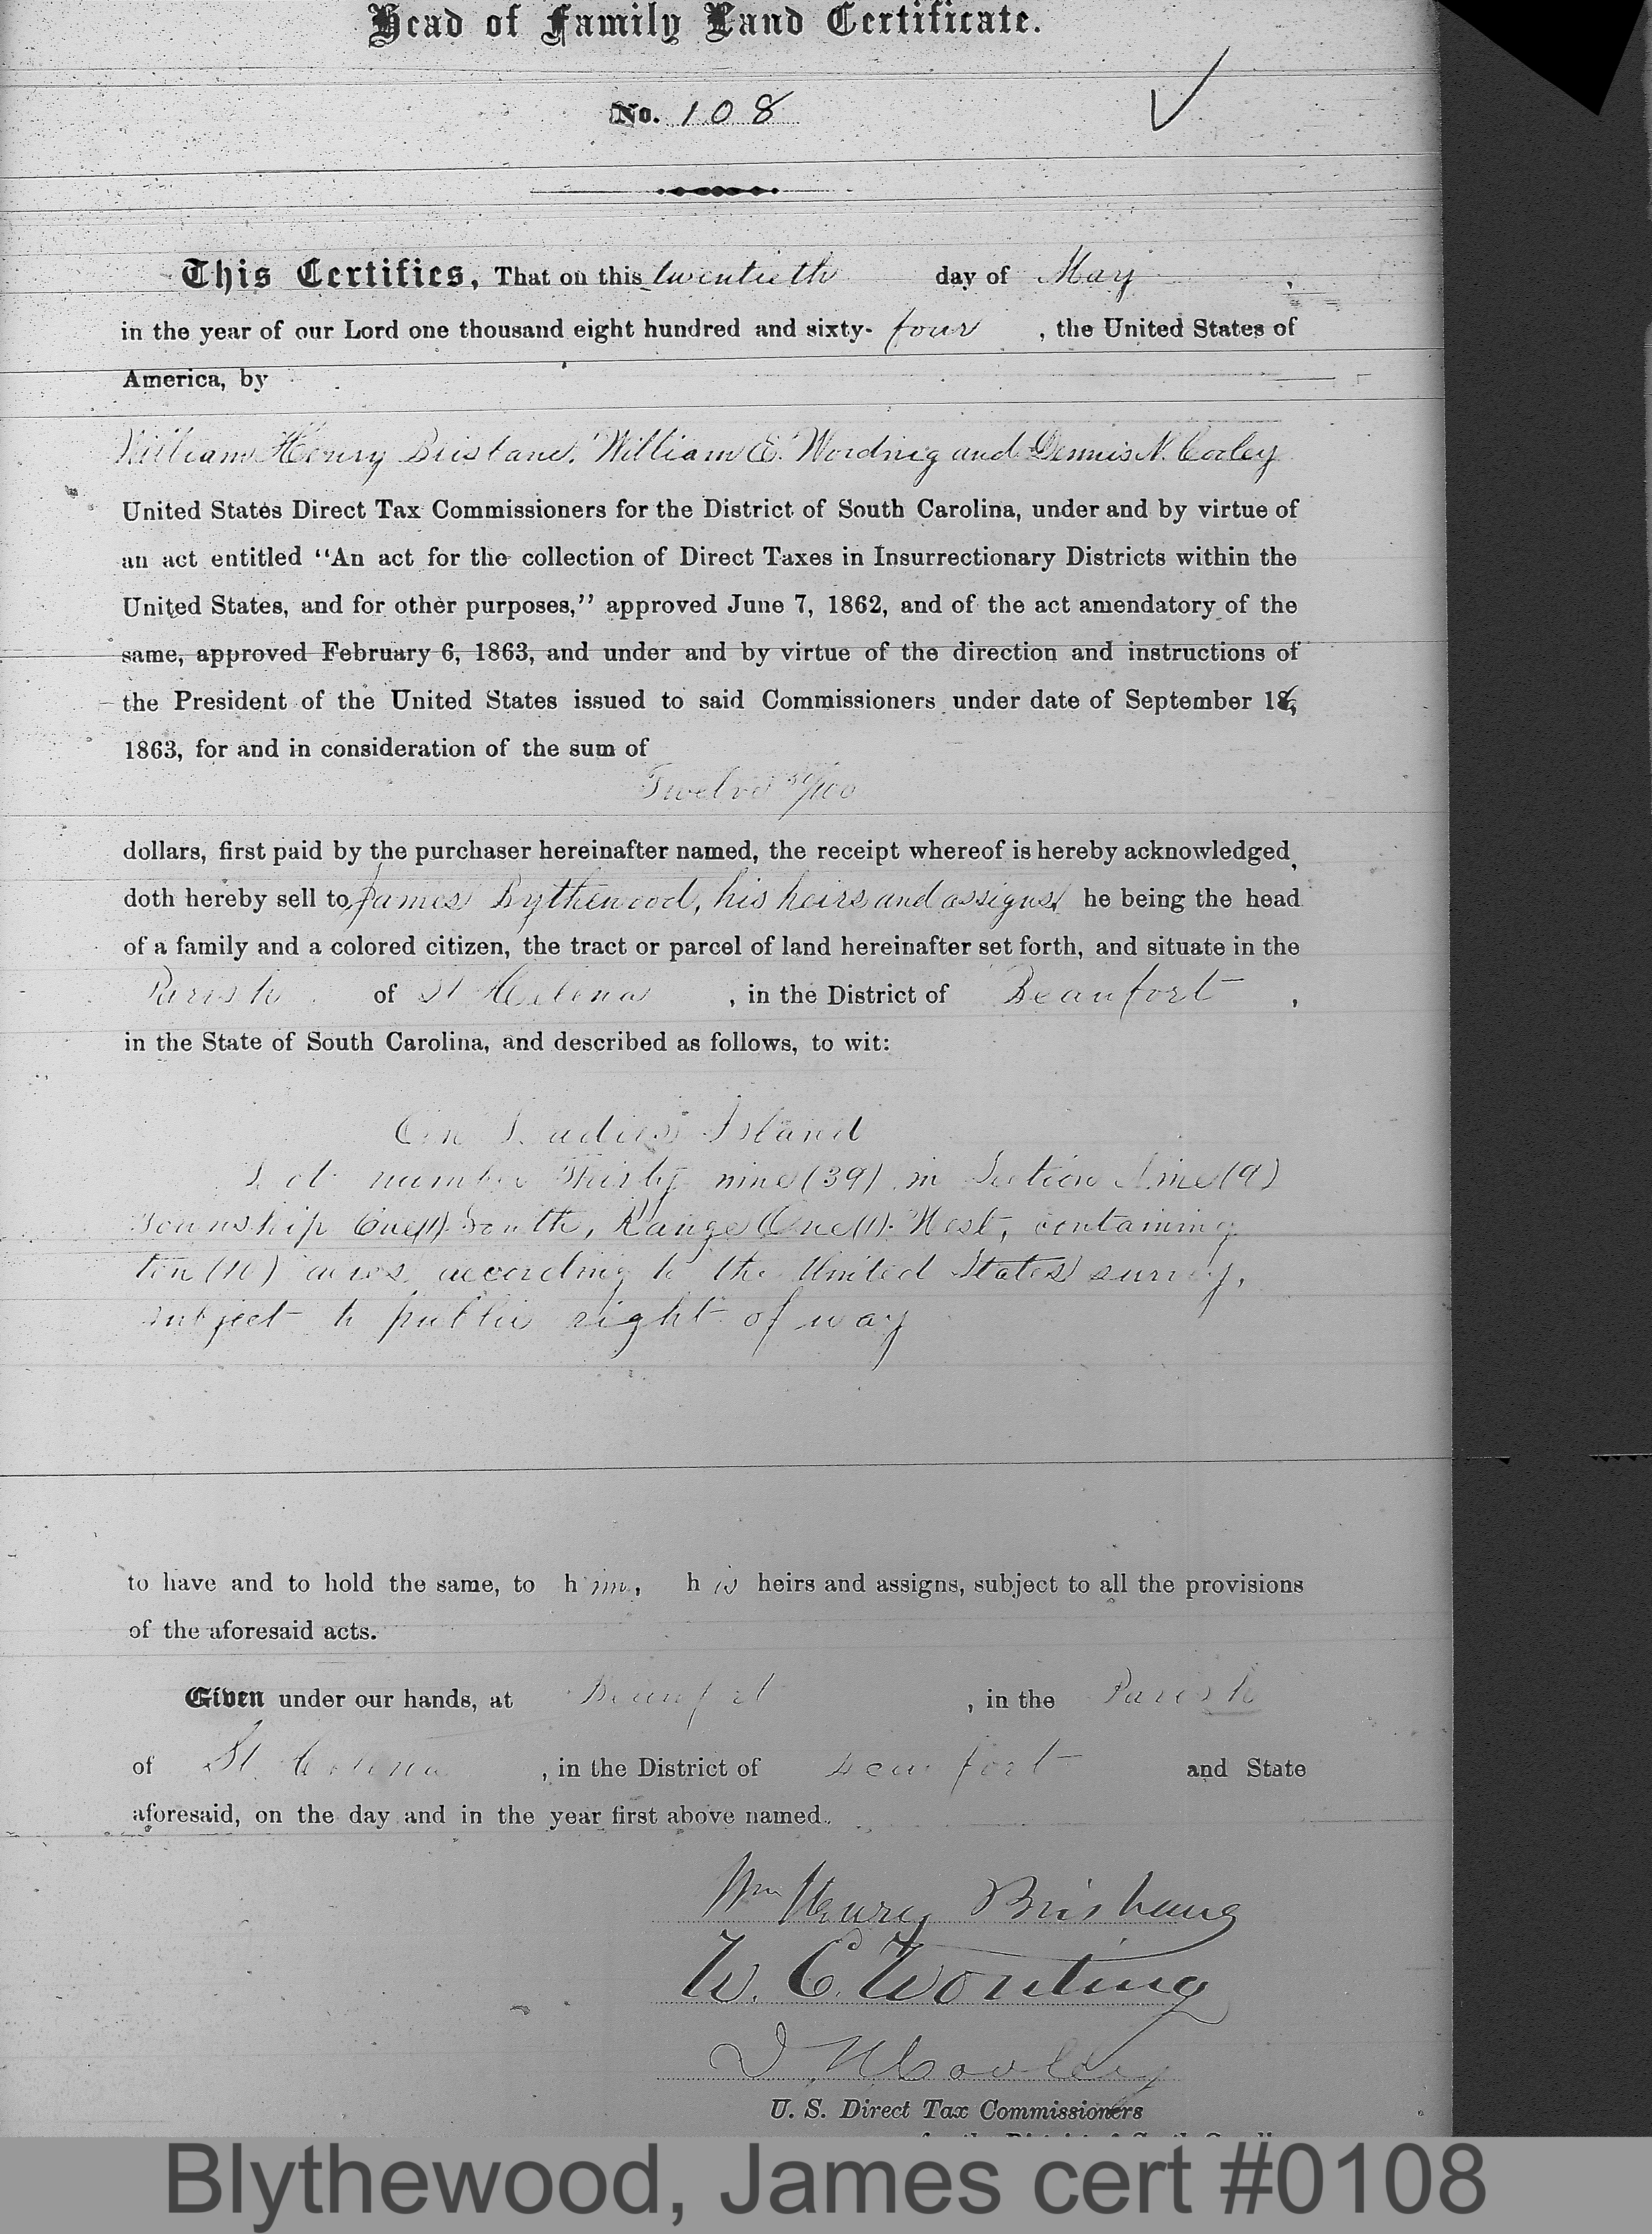 Head of Family Land Certificate.
No. 108
This Certifies, That on this twentieth day of May,
in the year of our Lord one thousand eight hundred and sixty-four, the United States of
America, by
William Henry Brisbane, William E. Wording and Dennis N. Cooley
United States Direct Tax Commissioners for the District of South Carolina, under and by virtue of
an act entitled "An act for the collection of Direct Taxes in Insurrectionary Districts within the
United States, and for other purposes," approved June 7, 1862, and of the act amendatory of the
same, approved February 6, 1863, and under and by virtue of the direction and instructions of
the President of the United States issued to said Commissioners under date of September 16,
1863, for and in consideration of the sum of
Twelve 50/100
dollars, first paid by the purchaser hereinafter named, the receipt whereof is hereby acknowledged,
doth hereby sell to James Bythewood, his heirs and assigns, he being the head
of a family and a colored citizen, the tract or parcel of land hereinafter set forth, and situate in the
Parish of St Helena, in the District of Beaufort,
in the State of South Carolina, and described as follows, to wit:
On Ladies Island
Lot number Thirty nine (39) in Section Nine (9)
Township One (1) South, Range One (1) West, containing
ten (10) acres, according to the United States survey,
subject to public right of way
to have and to hold the same, to him, his heirs and assigns, subject to all the provisions
of the aforesaid acts.
Given under our hands, at Beaufort, in the Parish
of St. Helena, in the District of Beaufort and State
aforesaid, on the day and in the year first above named.
Wm Henry Brisbane
W. E. Wording
D. N. Cooley
U. S. Direct Tax Commissioners
Blythewood, James cert #0108